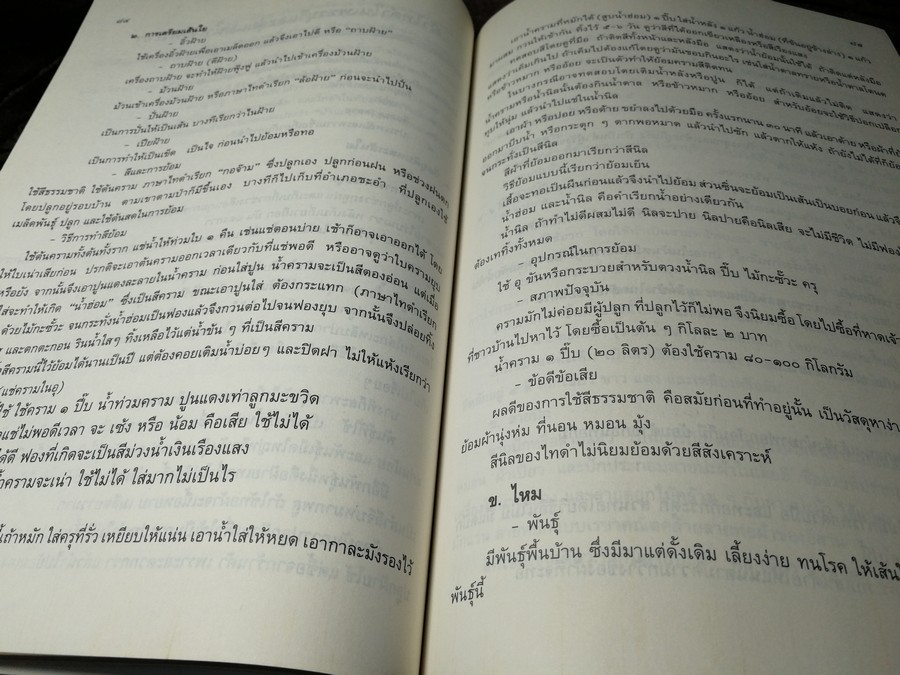 ๗๘
๒. การเตรียมเส้นใย
- อิ้วฝ้าย
ใช้เครื่องอิ้วฝ้ายเพื่อเอาเมล็ดออก แล้วจึงเอาไปดี หรือ "ถาบฝ้าย"
- ถาบฝ้าย (ดีฝ้าย)
เครื่องถาบฝ้าย จะทำให้ฝ้ายฟุ้งฟู แล้วนำไปเข้าเครื่องม้วนฝ้าย
- ม้วนฝ้าย
ม้วนเข้าเครื่องม้วนฝ้าย หรือภาษาไทดำเรียก "ล้อฝ้าย" ก่อนจะนำไปปั่น
- ปั่นฝ้าย
เป็นการปั่นให้เป็นเส้น บางทีเรียกว่าในฝ้าย
- เปียฝ้าย
เป็นการทำให้เป็นเข็ด เป็นใจ ก่อนนำไปย้อมหรือทอ
- สีและการย้อม
ใช้สีธรรมชาติ ใช้ต้นคราม ภาษาไทดำเรียก "กอจ๊าม" ซึ่งปลูกเอง ปลูกก่อนฝน หรือช่วงฝนตก
โดยปลูกอยู่รอบบ้าน ตามเขาตามป่าก็มีขึ้นเอง บางทีก็ไปเก็บที่อำเภอชะอำ ที่ปลูกเองใช้
เมล็ดพันธุ์ ปลูก และใช้ต้นสดในการย้อม
- วิธีการทำสีย้อม
ใช้ต้นครามทั้งต้นทั้งราก แช่น้ำให้ท่วมใบ ๑ คืน เช่นแช่ตอนบ่าย เช้าก็อาจเอาออกได้ โดย
ให้ใบเน่าเสียก่อน ปรกติจะเอาต้นครามออกเวลาเดียวกับที่แช่พอดี หรืออาจดูว่าใบครามยุบ
หรือยัง จากนั้นจึงเอาปูนแดงละลายในน้ำคราม ก่อนใส่ปูน น้ำครามจะเป็นสีตองอ่อน แต่เมื่อ
ใส่จะทำให้เกิด "น้ำฮ่อม" ซึ่งเป็นสีคราม ขณะเอาปูนใส่ ต้องกระแทก (ภาษาไทดำเรียก
ด้วยไม้กะซั้วะ จนกระทั่งน้ำฮ่อมเป็นฟองแล้วจึงกวนต่อไปจนฟองยุบ จากนั้นจึงปล่อยทิ้ง
ๆ และตกตะกอน รินน้ำใสๆ ทิ้งเหลือไว้แต่น้ำข้น ๆ ที่เป็นสีคราม
สีครามนี้ไว้ย้อมได้นานเป็นปี แต่ต้องคอยเติมน้ำบ่อยๆ และปิดฝา ไม่ให้แห้งเรียกว่า
(แช่ครามในอุ)
ใช้ ใช้คราม ๑ ปี๊บ น้ำท่วมคราม ปูนแดงเท่าลูกมะขวิด
แช่ไม่พอดีเวลา จะ เซ้ง หรือ น้อม คือเสีย ใช้ไม่ได้
ได้ดี ฟองที่เกิดจะเป็นสีม่วงน้ำเงินเรืองแสง
ครามจะเน่า ใช้ไม่ได้ ใส่มากไม่เป็นไร
ขี้เถ้าหมัก ใส่ครุที่รั่ว เหยียบให้แน่น เอาน้ำใส่ให้หยด เอากาละมังรองไว้
๗๙
เอาน้ำครามที่หมักได้ (ฮูบน้ำฮ่อม) ๑ ปี๊บ ใส่น้ำหลัง ๑ แก้ว
ผสม กวนให้เข้ากัน ทิ้งไว้ ๕-๖ วัน
ทดสอบสีโดยดูที่มือ ถ้าติดสีทั้งหน้าและหลังมือ แสดงว่าน้ำย้อมนั้นใช้ได้
หรือข้าวหมาก หรืออ้อย จะเป็นตัวทำให้ย้อมครามสีติดทน
ในบางกรณีอาจทดสอบโดยเติมน้ำหลังหรือปูน ก็ได้ แต่ถ้าเติมแล้วไม่ติด แสดงว่า
น้ำครามหรือน้ำนิลนั้นต้องกินน้ำตาล หรือข้าวหมาก หรืออ้อย
ทุบให้นุ่ม แล้วนำไปแช่ในน้ำนิล
เอาผ้า หรือปอย หรือด้าย ขยำลงไปด้วยมือ ครั้งแรกนาน ๓๐ นาที
ออกมาบีบน้ำ หรือกระตุก ๆ ตากพอหมาด แล้วนำไปซัก แล้วตากให้แห้ง ถ้ายังไม่ได้ที่ก็ย้อม
จนกระทั่งเป็นสีนิล
สีผ้าที่ย้อมออกมาเรียกว่าสีนิล
วิธีย้อมแบบนี้เรียกว่าย้อมเย็น
เสื่อจะทอเป็นผืนก่อนแล้วจึงนำไปย้อม ส่วนซิ่นจะย้อมเป็นเส้นเป็นปอยก่อน แล้วจึง
น้ำฮ่อม และน้ำนิล คือคำเรียกน้ำอย่างเดียวกัน
น้ำนิล ถ้าทำไม่ดีผสมไม่ดี นิลจะปาย นิลปายคือนิลเสีย จะไม่มีชีวิต ไม่มีฟอง
ต้องเททิ้งทั้งหมด
- อุปกรณ์ในการย้อม
ใช้ อุ ขันหรือกระบวยสำหรับตวงน้ำนิล ปี๊บ ไม้กะซั้วะ ครุ
- สภาพปัจจุบัน
ครามมักไม่ค่อยมีผู้ปลูก ที่ปลูกไว้ก็ไม่พอ จึงนิยมซื้อ โดยไปซื้อที่หาดเจ้า
ที่ชาวบ้านไปหาไว้ โดยซื้อเป็นต้น ๆ กิโลละ ๒ บาท
น้ำคราม ๑ ปี๊บ (๒๐ ลิตร) ต้องใช้คราม ๘๐-๑๐๐ กิโลกรัม
- ข้อดีข้อเสีย
ผลดีของการใช้สีธรรมชาติ คือสมัยก่อนที่ทำอยู่นั้น เป็นวัสดุหาง่าย
ย้อมผ้านุ่งห่ม ที่นอน หมอน มุ้ง
สีนิลของไทดำไม่นิยมย้อมด้วยสีสังเคราะห์
ข. ไหม
- พันธุ์
มีพันธุ์พื้นบ้าน ซึ่งมีมาแต่ดั้งเดิม เลี้ยงง่าย ทนโรค ให้เส้น
พันธุ์นี้